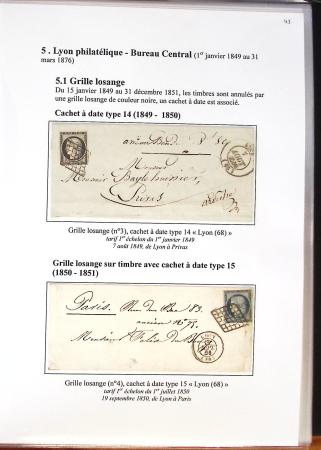 43
5 . Lyon philatélique - Bureau Central (1er janvier 1849 au 31
mars 1876)
5.1 Grille losange
Du 15 janvier 1849 au 31 décembre 1851, les timbres sont annulés par
une grille losange de couleur noire, un cachet à date est associé.
Cachet à date type 14 (1849 - 1850)
Monsieur
Privas
Grille losange (n°3), cachet à date type 14 « Lyon (68) »
tarif 1er échelon du 1er janvier 1849
7 août 1849, de Lyon à Privas
Grille losange sur timbre avec cachet à date type 15
(1850 - 1851)
Paris. Rue du Bac 83.
ancien N° 75.
Monsieur Felix
Grille losange (n°4), cachet à date type 15 « Lyon (68) »
tarif 1er échelon du 1er juillet 1850
19 septembre 1850, de Lyon à Paris